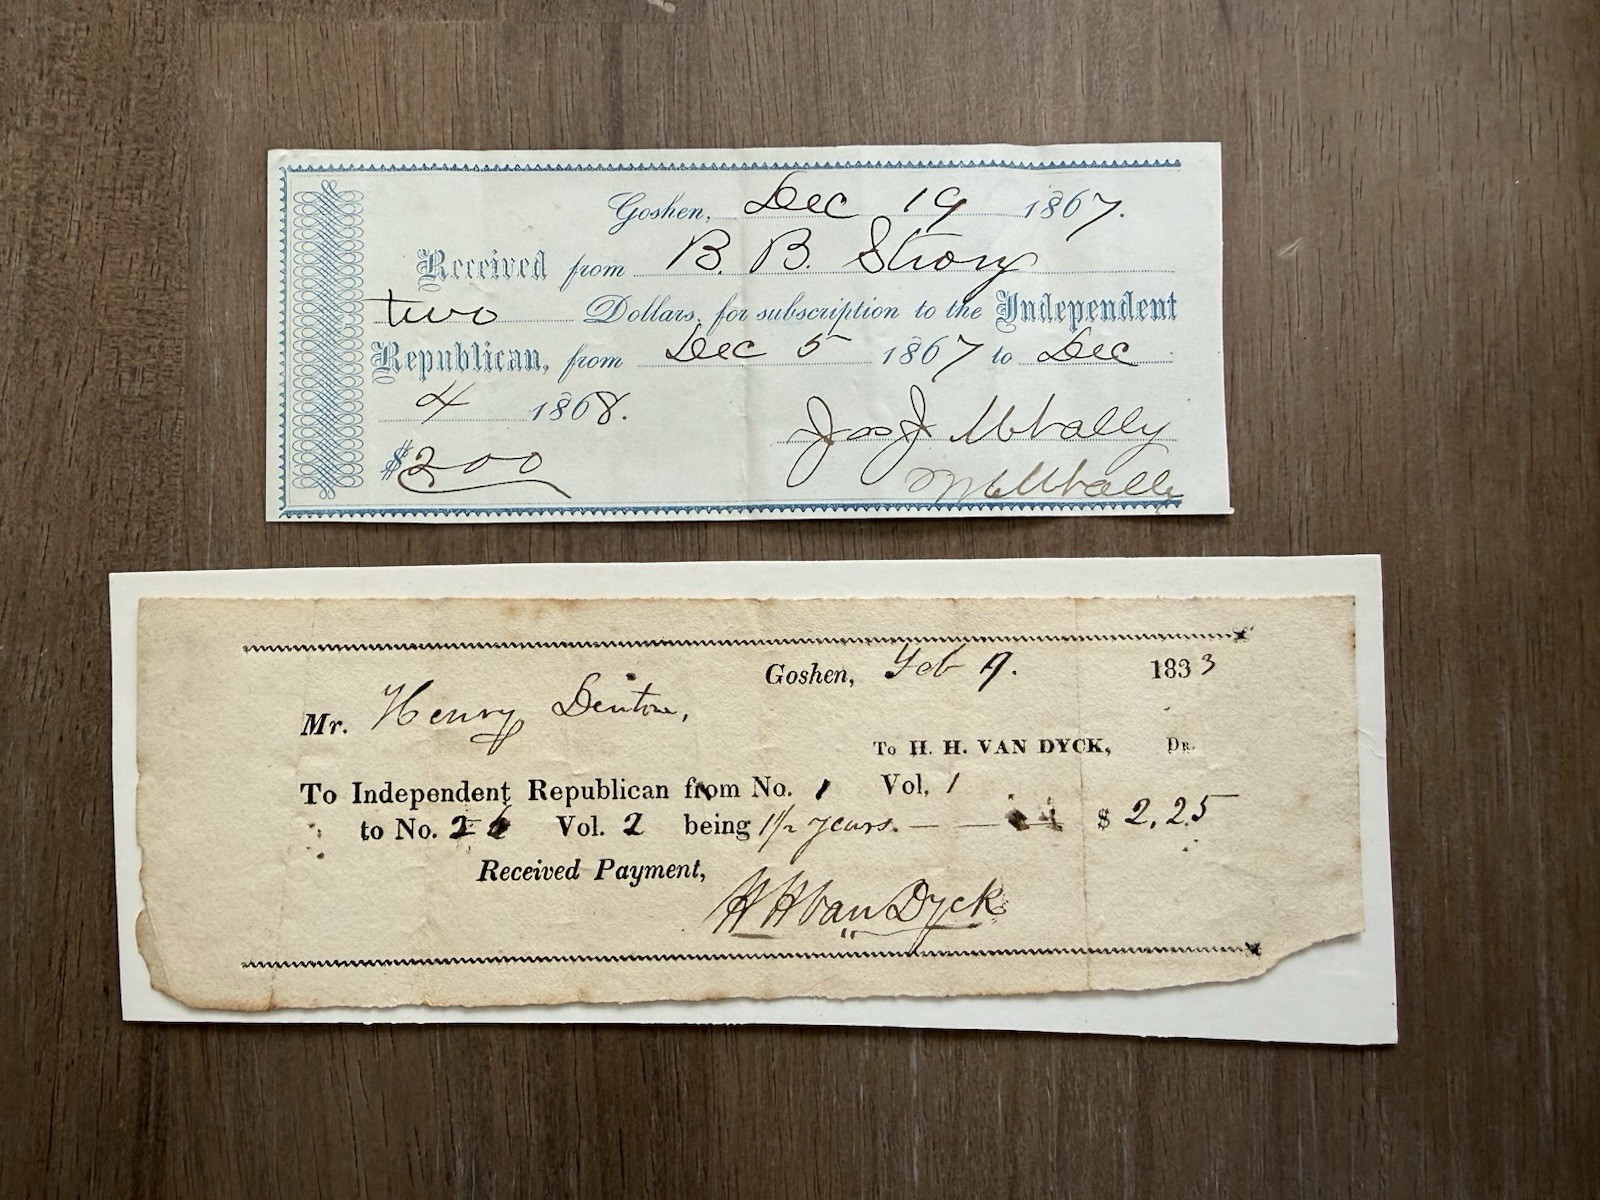 Goshen, Dec 19 1867.
Received from B. B. Strong
two Dollars, for subscription to the Independent
Republican, from Dec 5 1867 to Dec
4 1868.
$200
Jas J. McNally
McNally
Goshen, Feb 9. 1833
Mr. Henry Denton,
To H. H. VAN DYCK, DR.
To Independent Republican from No. 1 Vol. 1
to No. 26 Vol. 2 being 1 1/2 years. — — $ 2,25
Received Payment,
H H Van Dyck